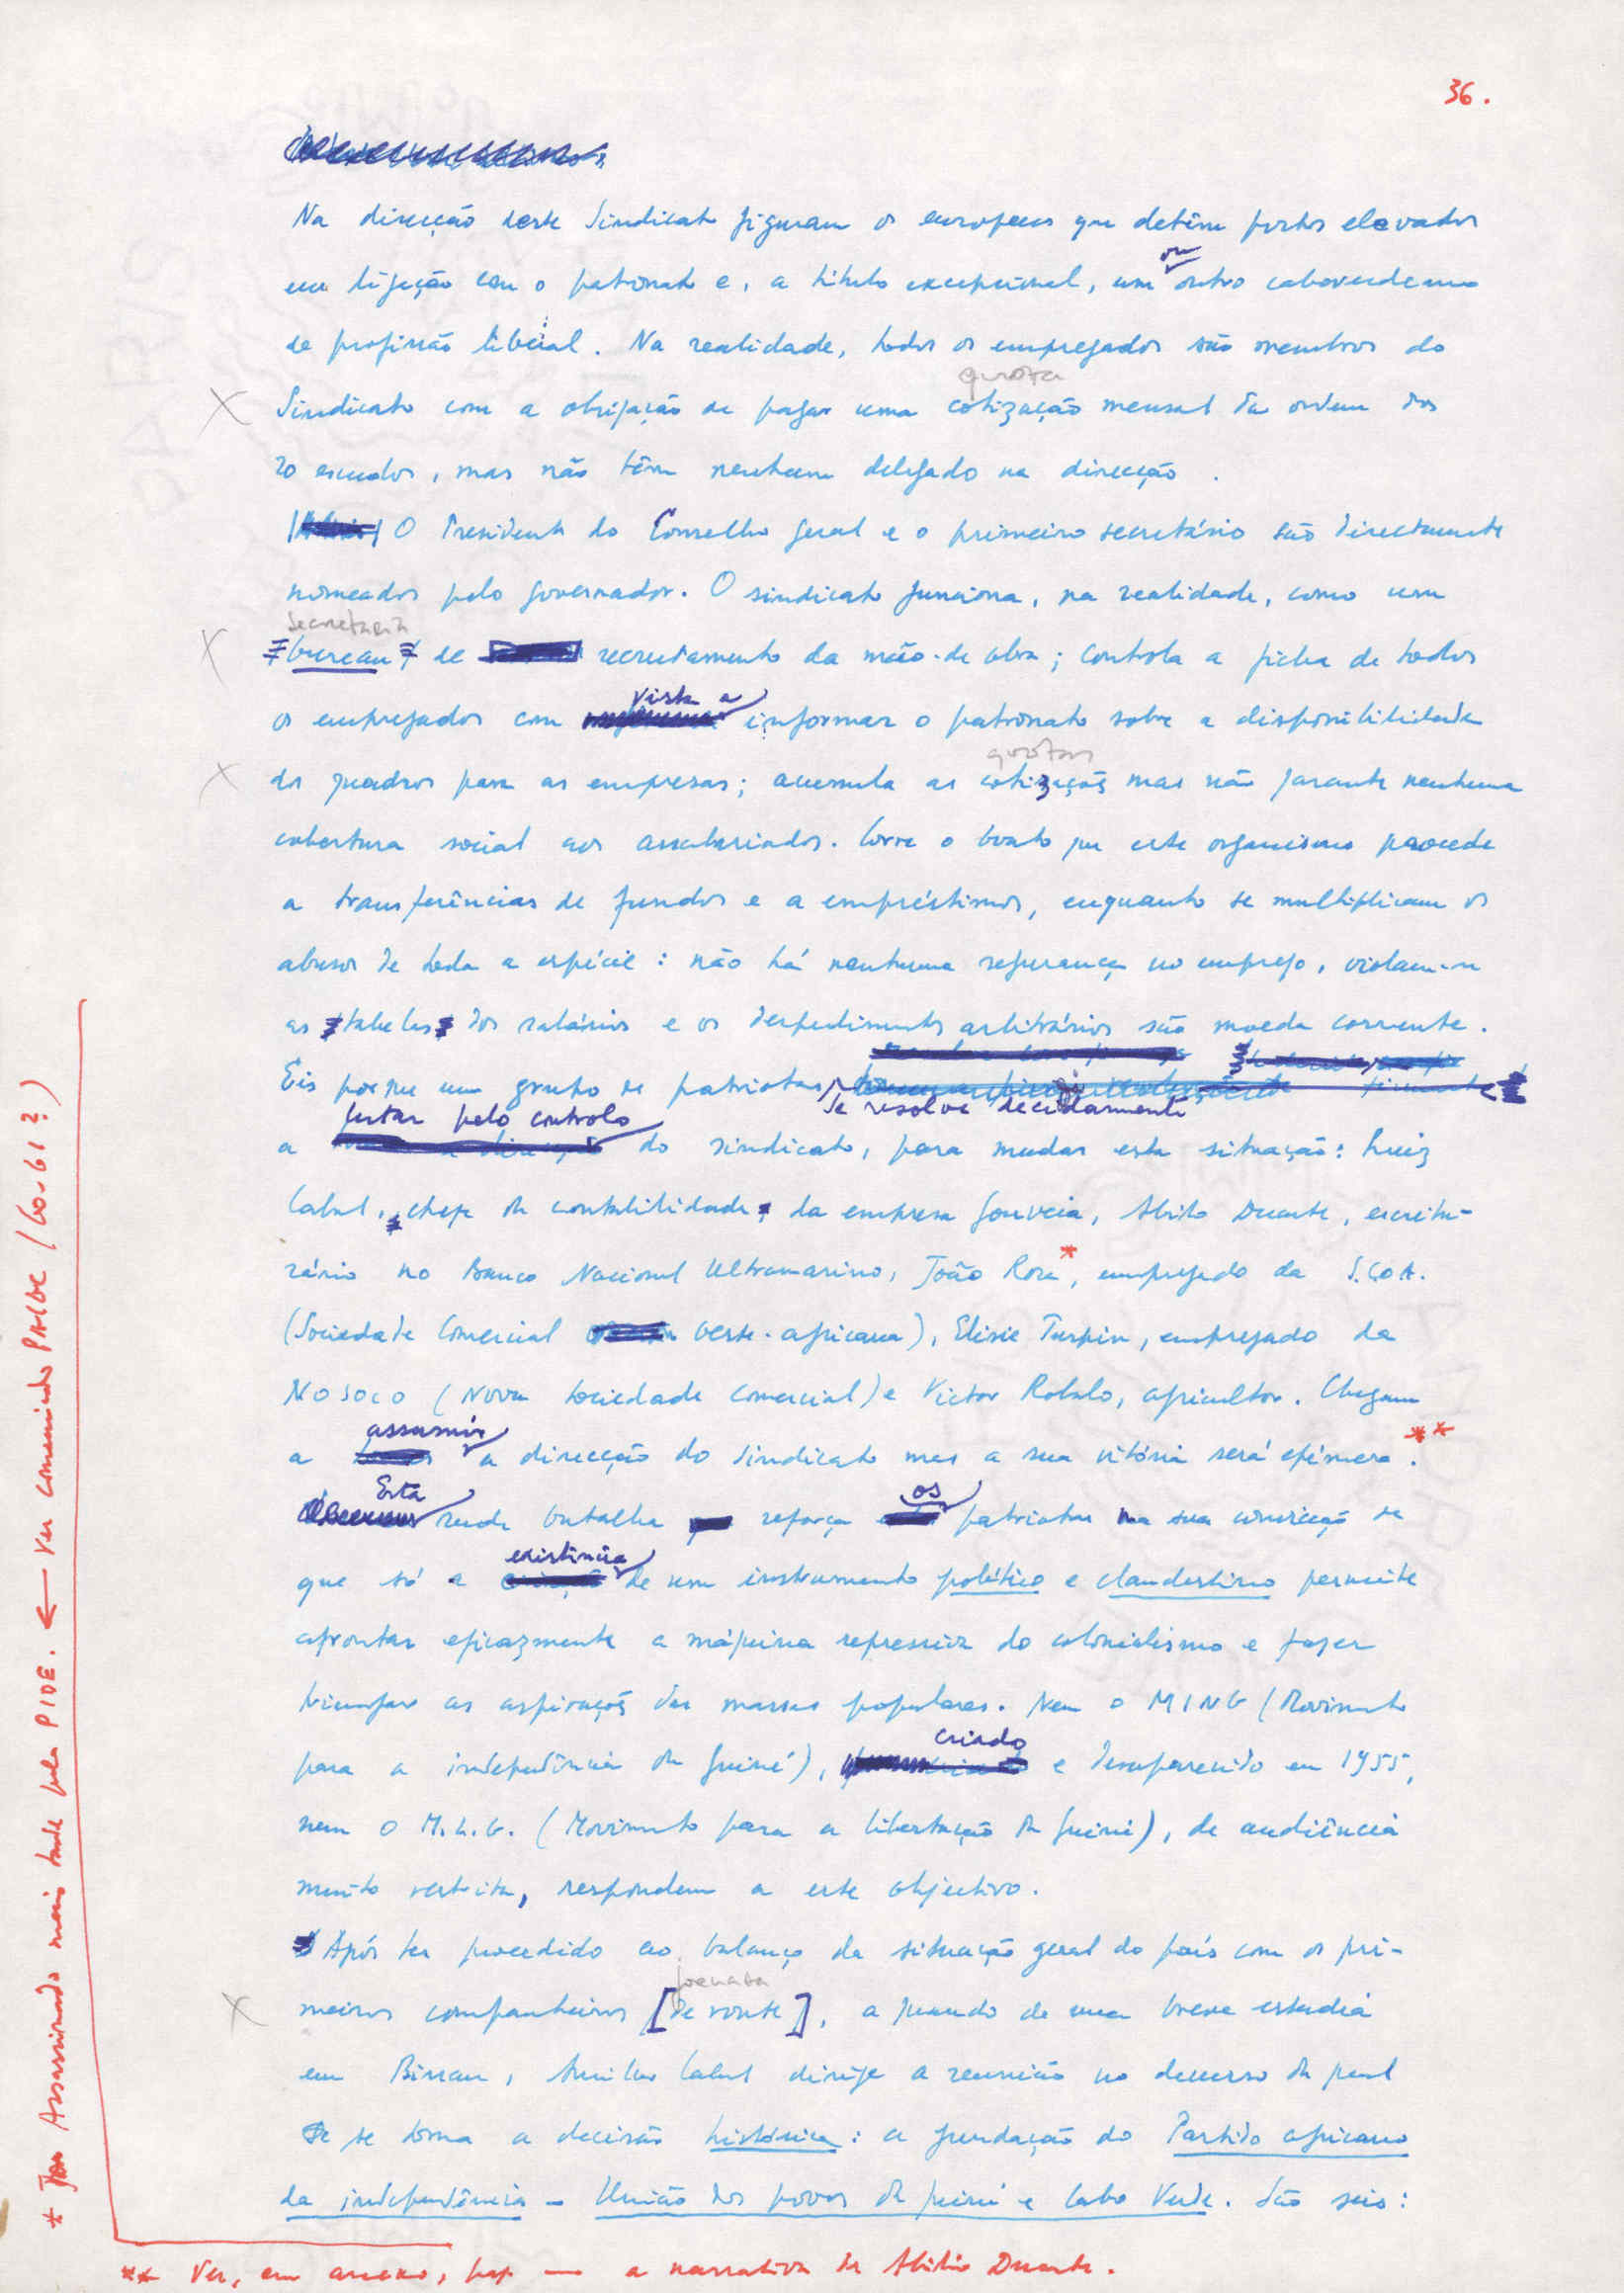 36.
Na direcção deste Sindicato figuram os europeus que detêm postos elevados
ou
em ligação com o patronato e, a título excepcional, um outro caboverdeano
de profissão liberal. Na realidade, todos os empregados são membros do
quota
Sindicato com a obrigação de pagar uma cotização mensal da ordem dos
20 escudos, mas não têm nenhum delegado na direcção.
O Presidente do Conselho geral e o primeiro secretário são directamente
nomeados pelo governador. O sindicato funciona, na realidade, como um
secretaria
bureau de recrutamento da mão-de obra; controla a ficha de todos
vista a
os empregados com informar o patronato sobre a disponibilidade
quotas
de quadros para as empresas; acumula as cotizações mas não garante nenhuma
cobertura social aos assalariados. Corre o boato que este organismo procede
a transferências de fundos e a empréstimos, enquanto se multiplicam os
abusos de toda a espécie: não há nenhuma segurança no emprego, violam-se
as tabelas dos salários e os despedimentos arbitrários são moeda corrente.
Eis porque um grupo de patriotas
lutar pelo controlo se resolve decididamente
a do sindicato, para mudar esta situação: Luiz
Cabral, chefe da contabilidade, da empresa Gouveia, Abílio Duarte, escritu-
rário no Banco Nacional Ultramarino, João Rosa*, empregado da S.C.O.A.
(Sociedade Comercial Oeste-africana), Elisée Turpin, empregado da
NOSOCO (Nova Sociedade Comercial) e Victor Robalo, agricultor. Chegam
assumir
a a direcção do Sindicato mas a sua vitória será efémera. **
Esta os
rude batalha reforça patriotas na sua convicção de
existência
que só a de um instrumento político e clandestino permite
afrontar eficazmente a máquina repressiva do colonialismo e fazer
triunfar as aspirações das massas populares. Nem o MING (Movimento
criado
para a independência da Guiné), e desaparecido em 1955,
nem o M.L.G. (Movimento para a libertação da Guiné), de audiência
muito restrita, respondem a este objectivo.
Após ter procedido ao balanço da situação geral do país com os pri-
jornada
meiros companheiros [de route], a quando de uma breve estadia
em Bissau, Amilcar Cabral dirige a reunião no decurso da qual
se toma a decisão histórica: a fundação do Partido africano
da independência - União dos povos da Guiné e Cabo Verde. São seis:
* Assassinado mais tarde pela PIDE. ← Ver comunicado PAIGC (60-61?)
** Ver, em anexo, pag — a narrativa de Abílio Duarte.